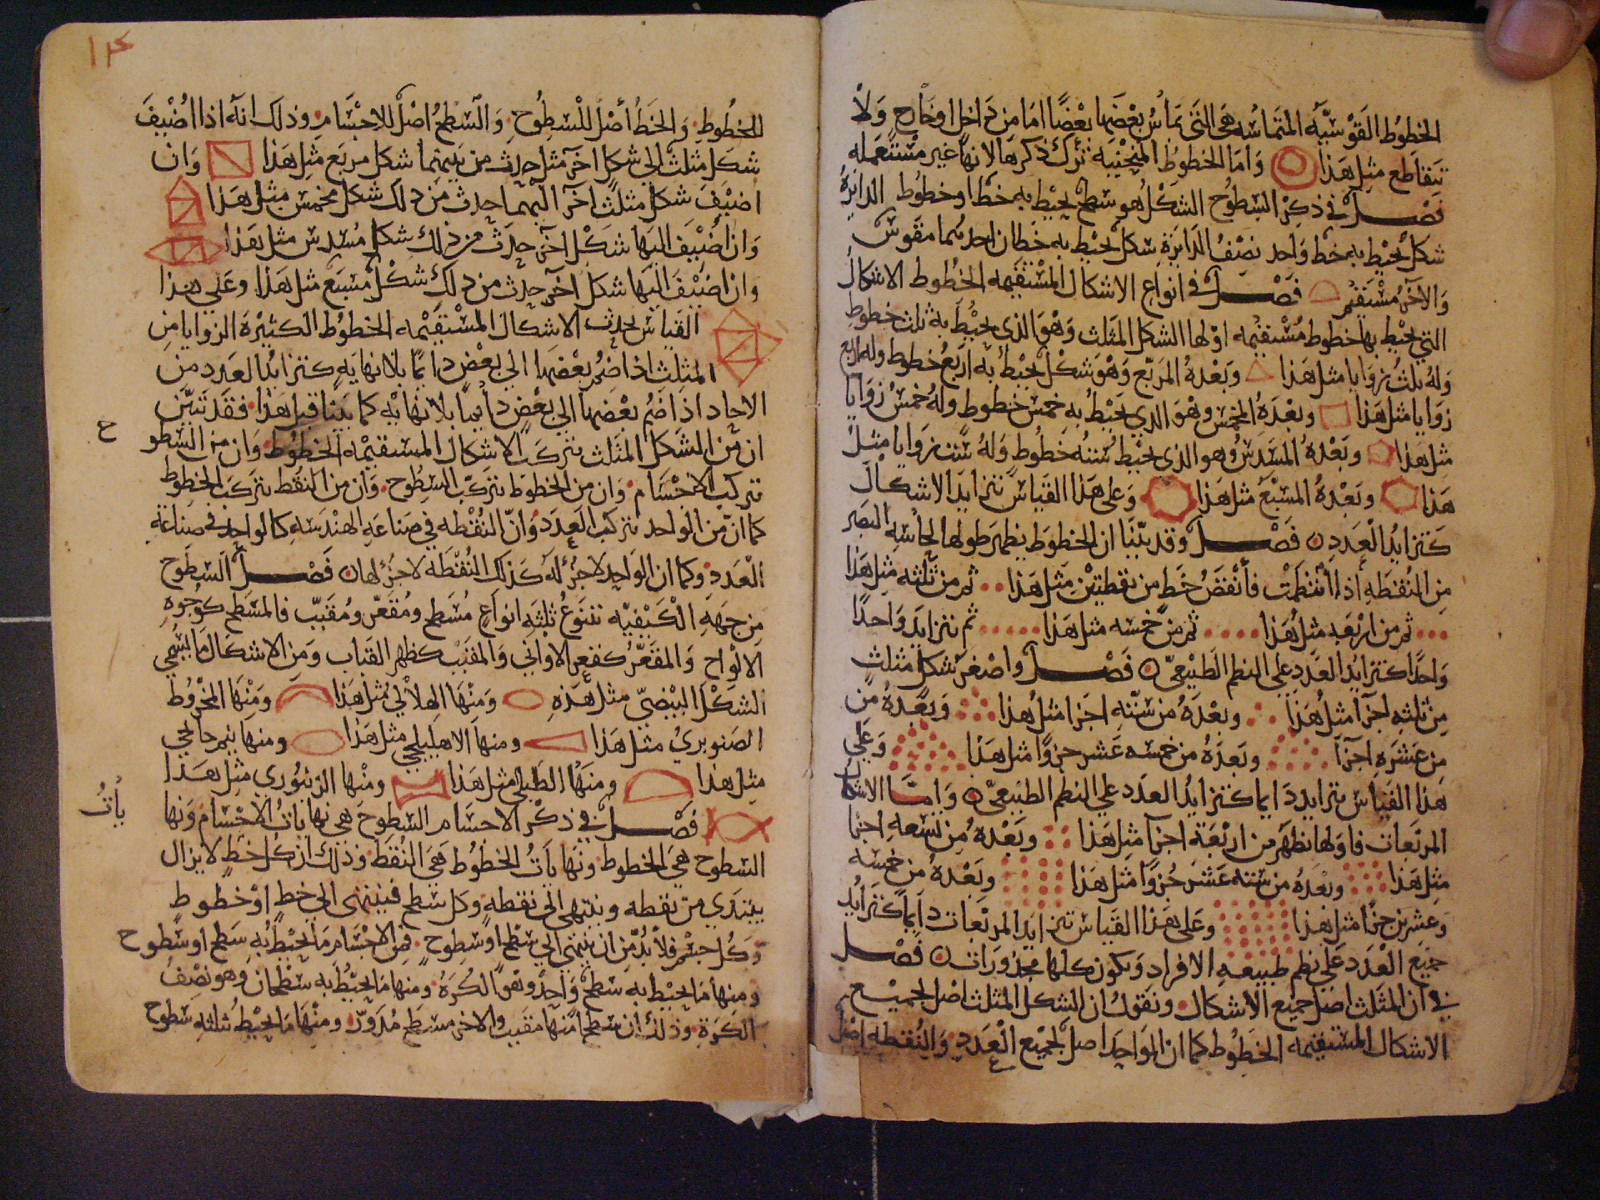 الخطوط القوسيه المتماسه هي التي يماس بعضها بعضا اما من داخل او خارج ولا
تتقاطع مثل هذا واما الخطوط المنحنيه نترك ذكرها لانها غير مستعمله
فصل في ذكر السطوح الشكل هو سطح يحيط به خط او خطوط الدايرة
شكل يحيط به خط واحد نصف الدايرة شكل يحيط به خطان احدهما مقوس
والاخر مستقيم فصل في انواع الاشكال المستقيمه الخطوط الاشكال
التي يحيط بها خطوط مستقيمه اولها الشكل المثلث وهو الذي يحيط به ثلث خطوط
وله ثلث زوايا مثل هذا وبعده المربع وهو شكل يحيط به اربع خطوط وله اربع
زوايا مثل هذا وبعده المخمس وهو الذي يحيط به خمس خطوط وله خمس زوايا
مثل هذا وبعده المسدس وهو الذي يحيط ستة خطوط وله ست زوايا مثل
هذا وبعده المسبع مثل هذا وعلى هذا القياس تتزايد الاشكال
كتزايد العدد فصل وقد بينا ان الخطوط يظهر طولها لحاسه البصر
من النقطه اذا انتظمت فأنقص خط من نقطتين مثل هذا ثم من ثلثه مثل هذا
ثم من اربعه مثل هذا ثم من خمسه مثل هذا ثم تتزايد واحدا
واحدا كتزايد العدد على النظم الطبيعي فصل واصغر شكل مثلث
من ثلثه اجزا مثل هذا وبعده من سته اجزا مثل هذا وبعده من
من عشره اجزآ وبعده من خمسه عشر جزوا مثل هذا وعلى
هذا القياس يتزايد دايما كتزايد العدد على النظم الطبيعي واما الاشكال
المربعات فاولها يظهر من اربعة اجزا مثل هذا وبعده من تسعه اجزا
مثل هذا وبعده من سته عشر جزوا مثل هذا وبعده من خمسه
وعشرين جزا مثل هذا وعلى هذا القياس تتزايد المربعات دايما كتزايد
جميع العدد على نظم طبيعه الافراد ويكون كلها مجذورات فصل
في ان المثلث اصل جميع الاشكال ونقول ان الشكل المثلث اصل لجميع
الاشكال المستقيمه الخطوط كما ان الواحد اصل لجميع العدد والنقطه اصل
١٤
للخطوط والخط أصل للسطوح والسطح اصل للاجسام وذلك انه اذا اضيف
شكل مثلث الى شكل اخر مثله حدث من بينهما شكل مربع مثل هذا وان
اضيف شكل مثلث اخر اليهما حدث من ذلك شكل مخمس مثل هذا
وان اضيف اليها شكل اخر حدث من ذلك شكل مسدس مثل هذا
وان اضيف اليها شكل اخر حدث من ذلك شكل مسبع مثل هذا وعلى هذا
القياس يحدث الاشكال المستقيمه الخطوط الكثيرة الزوايا من
المثلث اذا ضم بعضها الى بعض دايما بلا نهايه كتزايد العدد من
الاحاد اذا ضم بعضها الى بعض دايما بلا نهايه كما بينا قبل هذا فقد تبين
ان من الشكل المثلث يتركب الاشكال المستقيمه الخطوط وان من السطو
ح
تتركب الاجسام وان من الخطوط يتركب السطوح وان من النقط يتركب الخطوط
كما ان من الواحد يتركب العدد وان النقطه في صناعه الهندسه كالواحد في صناعة
العدد وكما ان الواحد لا جزء له كذلك النقطه لا جزء لها فصل السطوح
من جهه الكيفيه تتنوع ثلثه انواع مسطح ومقعر ومقبب فالمسطح كوجوه
الالواح والمقعر كقعر الاواني والمقبب كظهر القباب ومن الاشكال ما يسمي
الشكل البيضي مثل هذه ومنها الهلالي مثل هذا ومنها المخروط
الصنوبري مثل هذا ومنها الاهليلجي مثل هذا ومنها نيم خانجي
مثل هذا ومنها الطبلي مثل هذا ومنها الزيتوري مثل هذا
فصل في ذكر الاجسام السطوح هي نهايات الاجسام ونها
يات
السطوح هي الخطوط ونهايات الخطوط هي النقط وذلك ان كل خط لا يزال
يبتدي من نقطه وينتهي الى نقطه وكل سطح فينتهي الى خط او خطوط
وكل جسم فلا بد من ان ينتهي الى سطح او سطوح فمن الاجسام ما يحيط به سطح او سطوح
ومنها ما يحيط به سطح واحد وهو الكرة ومنها ما يحيط به سطحان وهو نصف
الكرة وذلك ان سطحا منها مقبب والاخر مسطح مدور ومنها ما يحيط ثلثه سطوح